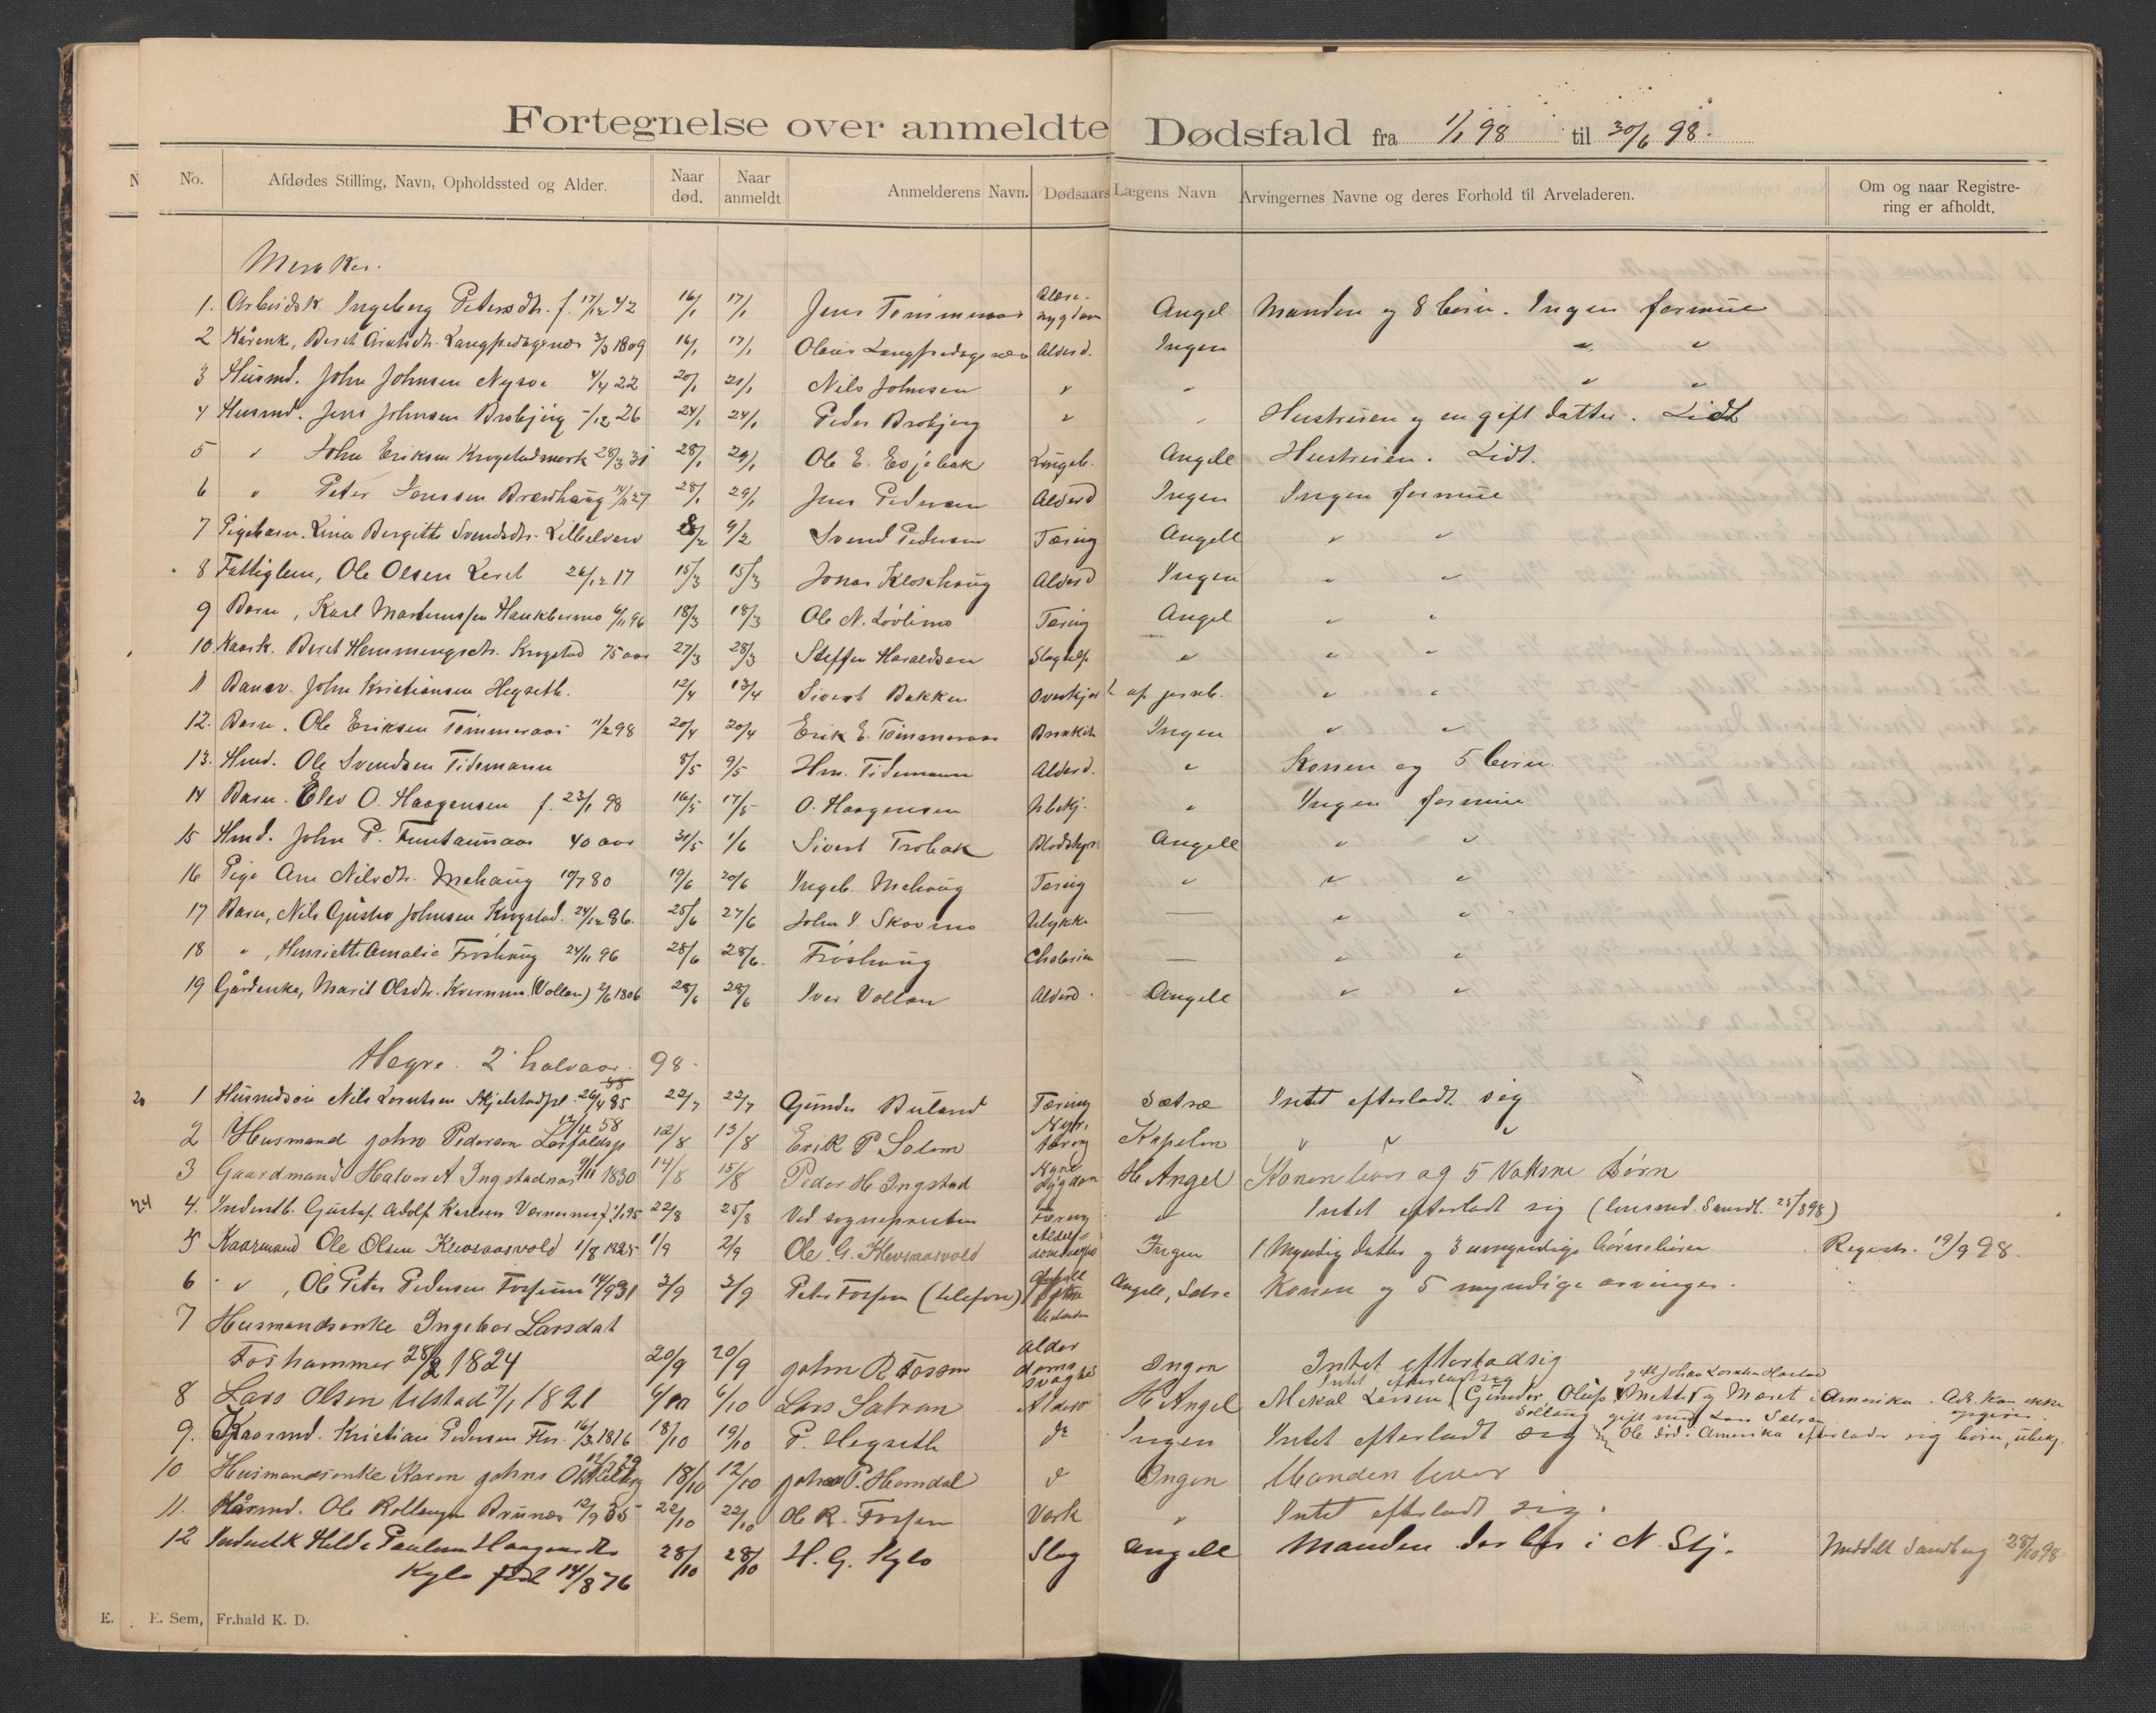 Fortegnelse over anmeldte Dødsfald fra 1/1 98 til 30/6 98.
No. Afdødes Stilling, Navn, Opholdssted og Alder. Naar død. Naar anmeldt. Anmelderens Navn. Dødsaars Lægens Navn Arvingernes Navne og deres Forhold til Arveladeren. Om og naar Registrering er afholdt.
Meraker.
1. Arbeidsk. Ingeborg Petersdtr. f. 17/12 42 16/1 17/1 Jens Tømmeraas Angel Manden og 8 børn. Ingen formue
2 Kårenke, Beret Arntsdtr. 3/3 1809 16/1 17/1 Alderd. Ingen " "
3 Husmd. John Johnsen 4/4 22 20/1 21/1 Nils Johnsen " " " "
4 Husmd. Jens Johnsen Brobjerg -/12 26 24/1 24/1 Peder Brobjerg " " Hustruen og en gift datter. Lidt
5 " John Eriksen Krogstadmark 28/3 31 28/1 29/1 Ole E. Evjebak Lungeb. Angell Hustruen. Lidt.
6 " Peter Jenssen 28/1 29/1 Jens Pedersen Alderd Ingen Ingen formue
7 Pigebarn. Lina Bergitte Svendsdtr. Lillelven 8/2 9/2 Svend Pedersen Tæring Angell " "
8 Fattiglem, Ole Olsen 26/12 17 15/3 15/3 Jonas Kloxhaug Alderd Ingen " "
9 Barn, Karl 6/11 96 18/3 18/3 Ole N. Løvlimo Tæring Angel " "
10. Kaark. Beret Hemmingsdtr. Krogstad 75 aar 27/3 28/3 Steffen Haraldsen Slagtilf. " " "
11 Banev. John Kristiansen Hegseth. 12/4 13/4 Sivert Bakken Overkjørt af jernb. " "
12. Barn. Ole Eriksen Tømmeraas 11/2 98 20/4 20/4 Erik E. Tømmeraas Ingen " "
13. Hmd. Ole Svendsen Tidemann 8/5 9/5 Hm. Tidemann Alderd. " Konen og 5 børn.
14 Barn. Elev O. Haagensen f. 23/1 98 16/5 17/5 O. Haagensen Ubekj. " Ingen formue
15 Hmd. John P. Funtaunaas 40 aar 31/5 1/6 Sivert Angell " "
16 Pige Ane Nilsdtr. Mehaug 10/7 80 19/6 20/6 Ingeb. Mehaug Tæring " " "
17 Barn, Nils Gustav Johnsen Krogstad. 24/12 86. 25/6 27/6 John Skovmo Ulykke — " "
18 ", Henriette Amalie Frøshaug 24/11 96 28/6 28/6. Frøshaug Cholerine — " "
19 Gårdenke, Marit Olsdtr. Kvernmo (Vollan) 2/6 1806 28/6 28/6 Iver Vollan Alderd. Angell " "
Hegre. 2' halvaar. 98.
1 Husmdsøn Nils 26/4 85 22/7 22/7 Gunder Buland Tæring Sætre Intet efterladt sig
2 Husmand John Pedersen 12/12 58 12/8 13/8 Erik P Solem " " "
3 Gaardmand Halvor A Ingstadnæs 9/11 1830 14/8 15/8 Peder H Ingstad Nyresygdom H Angel Konen lever og 5 Voksne Børn
4. Gustaf. Adolf Karlsen 95 22/8 25/8 Ved sognepresten Tæring " Intet efterladt sig (lensmd. 25/8 98)
5 Kaarmand Ole Olsen Klevsaasvold 1/8 1825 1/9 2/9 Ole. G. Klevsaasvold Ingen 1 Myndig datter og 3 umyndige børnebørn Registr. 19/9 98.
6 ", Ole Peter Pedersen 14/9 31 3/9 3/9 Peter Forsem (telefon) Angell, Sætre Konen og 5 myndige arvinger.
7 Husmandsenke Ingebor Larsdat
Foshammer 28/2 1824 20/9 20/9 John R Fossem Alderdomssvaghed Ingen Intet efterladsig
8 Lars Olsen Ulstad 7/1 1821 6/10 6/10 Lars Satran Alder H Angel Mekal Larsen (Gunder, Oluf Mette og Maret i Amerika. Adr. kan ikke opgives.
9. Kaarmd. Kristian Pedersen 16/3 1816 18/10 19/10 P. Hegseth do Ingen Intet efterladt sig Ole død i Amerika efterlader sig børn, ubekj.
10 Husmandsenke Karen Johns 18/10 12/10 John P. Horndal " Ingen Manden lever
11. Kårmd. Ole 12/9 35 22/10 22/10 Ole R. Forsem Værk " Intet efterladt sig.
12 Hilda Haagensdtr
Kylo født 14/8 76 28/10 28/10 H. G. Kylo Slag Angell Manden der bor i N. Stj. Meddelt Sandberg 28/10 98.
E. E. Sem, Fr.hald K. D.